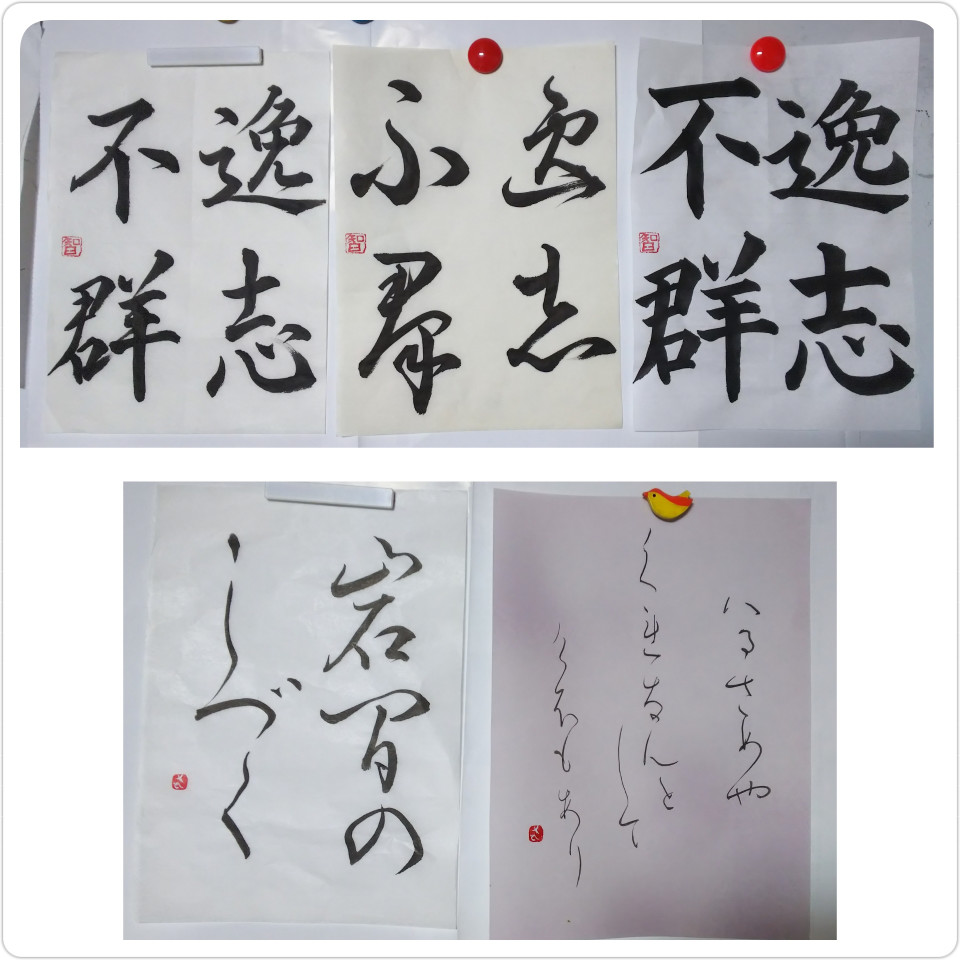 逸志
不群
智
逸志
不群
智
逸志
不群
智
岩間の
しづく
ハるさめや
くれなんとして
けふもあり